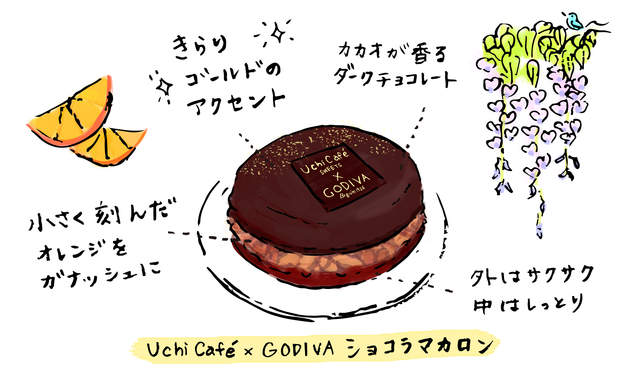 きらり
ゴールドの
アクセント
カカオが香る
ダークチョコレート
Uchi Café
SWEETS
×
GODIVA
小さく刻んだ
オレンジを
ガナッシュに
外はサクサク
中はしっとり
Uchi Café × GODIVA ショコラマカロン